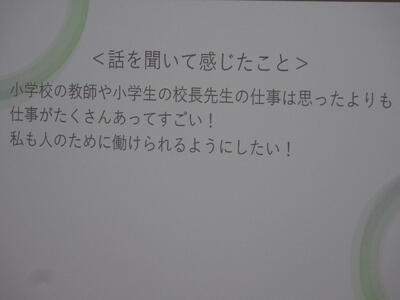 ＜話を聞いて感じたこと＞
小学校の教師や小学生の校長先生の仕事は思ったよりも
仕事がたくさんあってすごい！
私も人のために働けられるようにしたい！